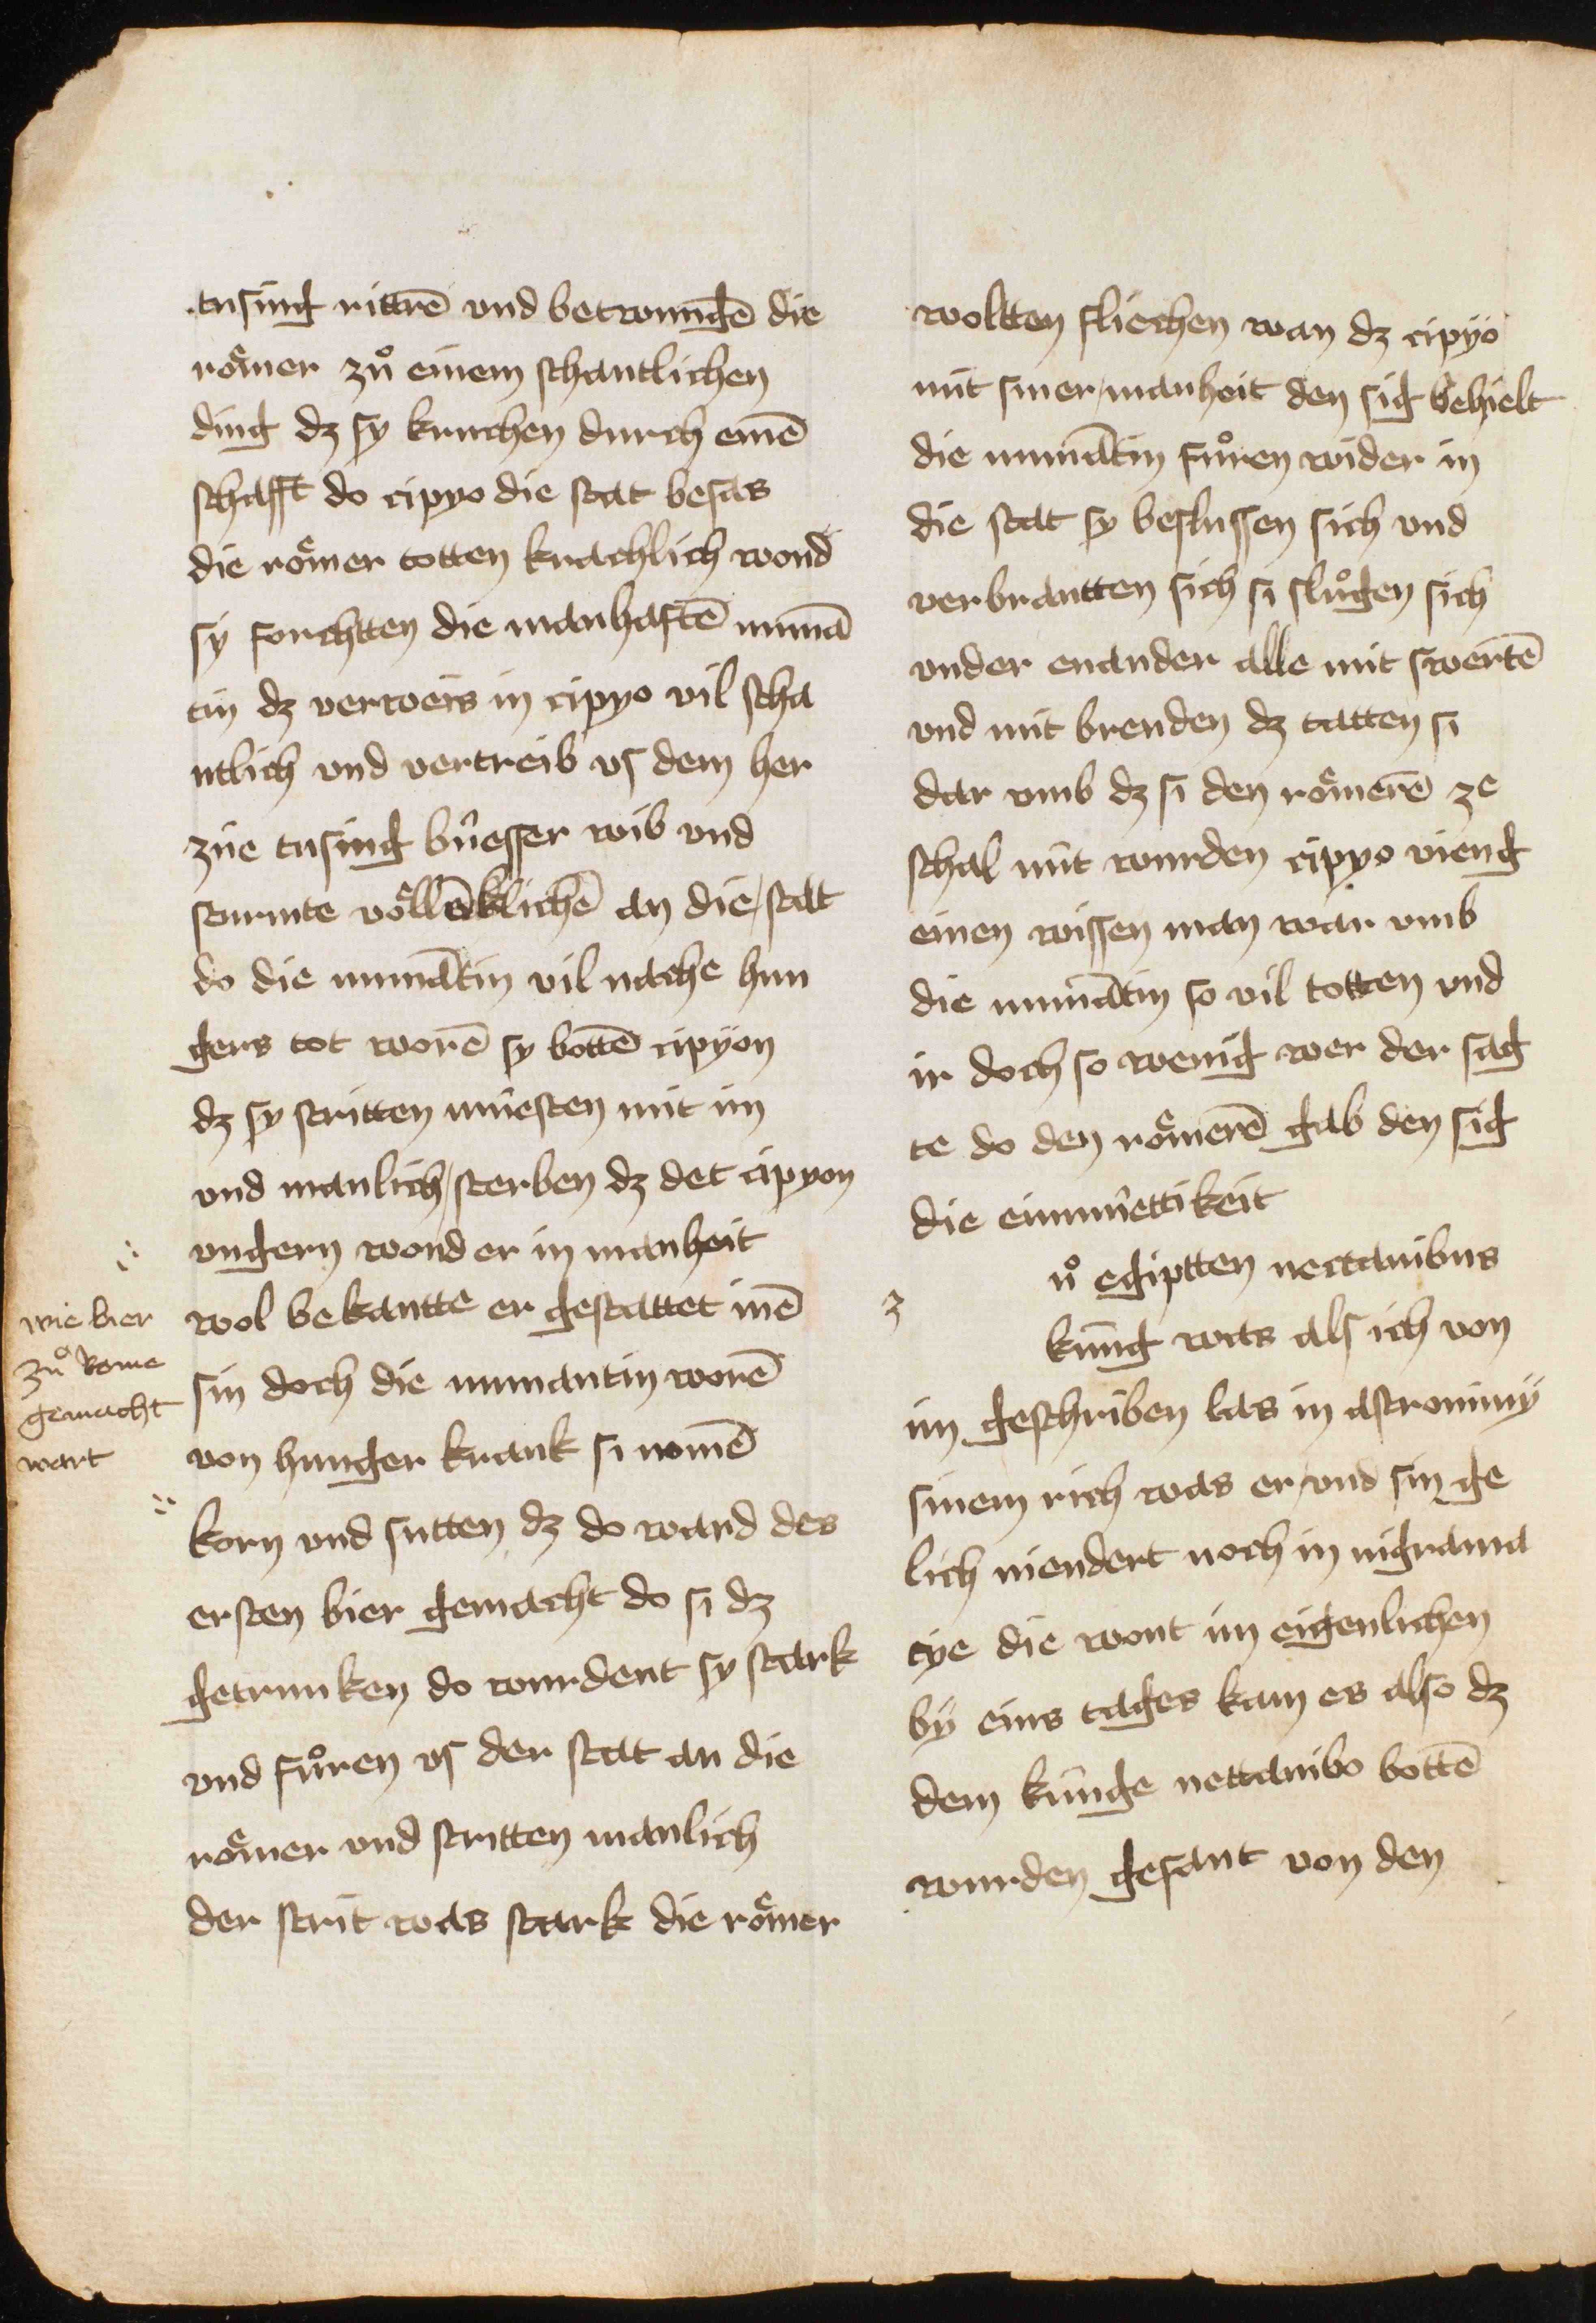 tusing rittrē und betwungē die
roͤmer zuͦ einem schantlichen
ding dz sy kruchen durch einē
schafft do cipyo die stat besas
die roͤmer totten krachlich wond
sy forchtten die manhaftē numā
tin dz verweis in cipyo vil scha
ntlich und vertreib us dem her
züe tusing buͤesser wib und
sturmte voͤllēklichē an die stat
do die numātin vil nache hun
gers tot worē sy bottē cipyon
dz sy stritten muͤesten mit im
und manlich sterben dz det cipyon
ungern wond er in manheit
wol bekantte er gestattet inē
sin doch die numantin worē
von hunger krank si nomē
korn und sutten dz do ward des
ersten bier gemacht do si dz
getrunken do wurdent sy stark
und fuͦren us der stat an die
roͤmer und stritten manlich
der strit was stark die roͤmer
wie bier
zuͦ Rome
gemacht
wart
woltten fliechen wan dz cipyo
mit siner manheit den sig behielt
die numātin fuͦren wider in
die stat sy beslussen sich und
verbrantten sich si sluͦgen sich
under enander alle mit swertē
und mit brenden dz tatten si
dar umb dz si den roͤmerē ze
schal nüt wurden cipyo vieng
einen wissen man war umb
die numātin so vil totten und
ir doch so wenig wer der sag
te do den roͤmerē gab den sig
die einmuͤettikeit
z
uͦ egiptten nectanibus
küng was als ich von
im geschriben las in astronimy
sinem rich was er und sin ge
lich niendert noch in nigrama
cye die wont im eigenlichen
by eins tages kam es also dz
dem künge nettanibo bottē
wurden gesant von den